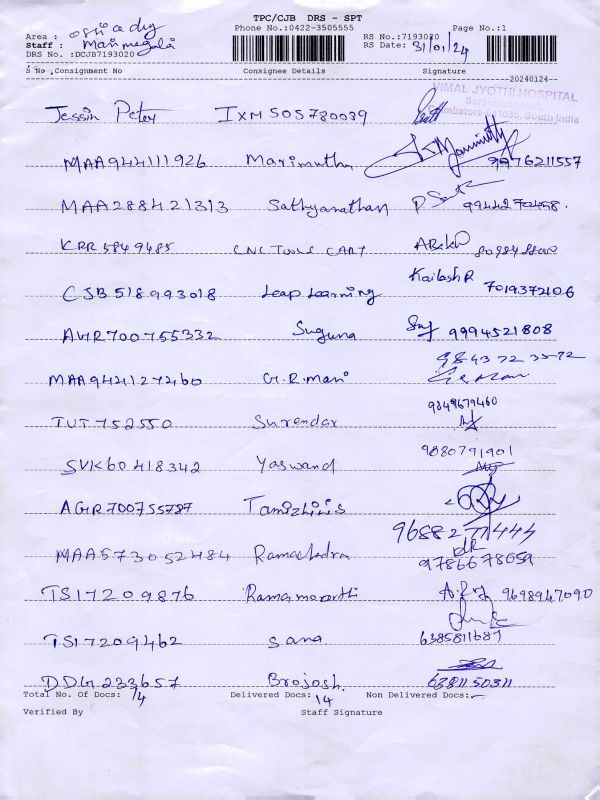 TPC/CJB DRS - SPT
Area :
Phone No.:0422-3505555
Page No.:1
Staff : Manimegala
RS No.:7193020
RS Date: 31/01/24
DRS No. :DCJB7193020
S No ,Consignment No Consignee Details Signature
20240124
VIMAL JYOTHI HOSPITAL
Saravanampatti,
Coimbatore 641035, South India
Jessin Peter IXM505780039
MAA944111926 Marimuthu 9976211557
MAA288421313 Sathyanathan P 9944270458.
KRR5849485 CNC TOOLS CART
CJB518993018 Leap Learning Kailash R 7019372106
AGR700755332 Suguna 9994521808
9843723572
MAA944127460 G.R.Mani
9849679460
TUT752550 Surendar
9080791901
SVK60418342 Yaswand
AGR700755787 Tamizhinis
9688271444
MAA573052484 Ramachadra 9786678059
TSI7209876 Ramamoorthi 9698947090
TSI7209462 Sana 6385811687
DDG233657 Brojosh. 6381150311
Total No. Of Docs: 14 Delivered Docs: 14 Non Delivered Docs:-
Verified By Staff Signature